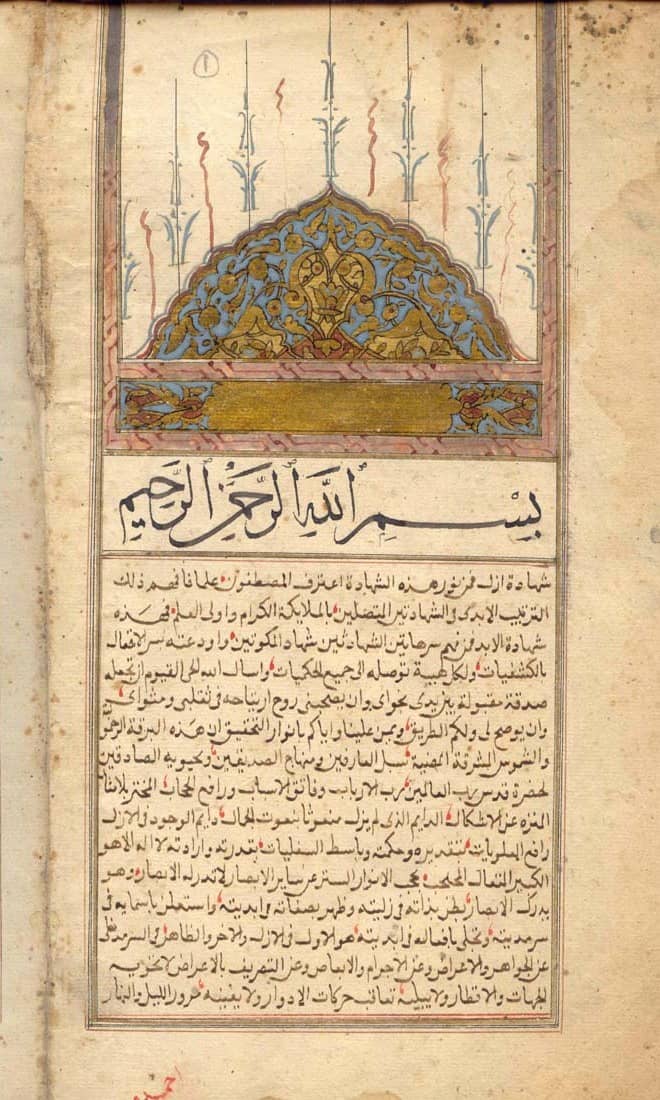 ١
بِسْمِ اللَّهِ الرَّحْمَنِ الرَّحِيمِ
شهادة ازل فمن نور هذه الشهادة اعترف المصطفون علما فافهم ذلك
الترتيب الابدى والشهادتين المتصلين بالملايكة الكرام واولى العلم فهذه
شهادة الابد فمن فهم سر هاتين الشهادتين شهاد المكوتين واودعته سر الافعال
بالكشفيات ولكل هيبة توصله الى جميع الحكميات واسال الله الحى القيوم ان تجعله
صدقة مقبولة بين يدى نجواى وان يصحبنى روح ارتياحه فى تقلبى ومثواى
وان يوضح لى ولكم الطريق ويمن علينا واياكم بانوار التحقيق ان هذه البرقة
والشموس المشرقة المضية سبل العارفين ومنهاج الصديقين ومحبوبه الصادقين
لحضرة قدس رب العالمين رب الارباب وفاتق الاسباب ورافع الحجاب
المنزه عن الاشكال الدايم الذى لم يزل منعوتا بنعوت الجلال دايم الوجود فى الازل
رافع العلويات بتقديره وحكمته وباسط السفليات بقدرته وارادته لا اله الا هو
الكبير المتعال الانوار الستر عن ساير الابصار لا تدركه الابصار وهو
يدرك الابصار بطن بذاته فى ازليته وظهر بصفاته فى ابديته واستعلن باسمايه فى
سرمديته وتجلى بافعاله فى ابديته هو الاول فى الازل والاخر والظاهر فى السرمد
عن الجواهر والاعراض وعن الاجرام والابعاض وعن التعريف بالاعراض لا تحويه
الجهات والاقطار ولا يبليه تعاقب حركات الادوار ولا يفنيه مرور الليل والنهار